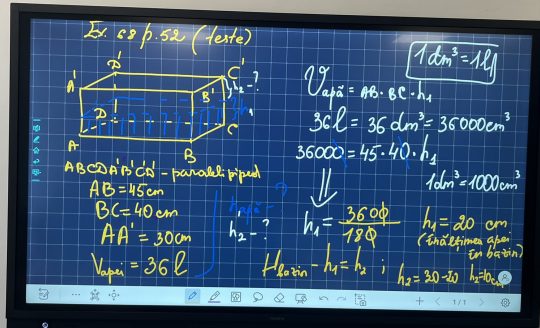 Ex. 68 p.52 (teste)
1dm³ = 1l
D'
C'
A'
B'
h₂ - ?
h₁
D
C
A
B
ABCDA'B'C'D' - paralelipiped
AB = 45cm
BC = 40cm
AA' = 30cm
Vapei = 36l
h₂ - ?
Vapă = AB · BC · h₁
36l = 36dm³ = 36000cm³
36000 = 45 · 40 · h₁
1dm³ = 1000cm³
h₁ = 3600 / 180
h₁ = 20 cm
(înălțimea apei în bazin)
Hbazin - h₁ = h₂ ; h₂ = 30-20 h₂ = 10cm
1/1